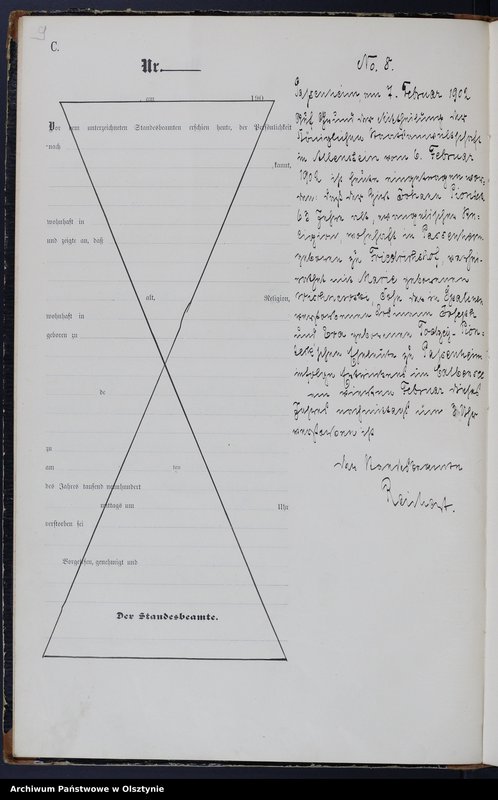 9
C.
Nr.
am 190
Vor dem unterzeichneten Standesbeamten erschien heute, der Persönlichkeit
nach
kannt,
wohnhaft in
und zeigte an, daß
alt, Religion,
wohnhaft in
geboren zu
de
zu
am ten
des Jahres tausend neunhundert
mittags um Uhr
verstorben sei
Vorgelesen, genehmigt und
Der Standesbeamte.
No. 8.
Passenheim am 7. Februar 1902
Auf Grund der Mittheilung der
Königlichen Staatsanwaltschaft
in Allenstein vom 6. Februar
1902 ist heute eingetragen wor-
den: daß der Hirt Johann
63 Jahre alt, evangelischer Re-
ligion, wohnhaft in Passenheim
geboren zu Friedrichshof, verhei-
rathet mit Marie geborenen
Sohn der in
verstorbenen
und Eva geborenen
Eheleute zu Passenheim
infolge Ertrinkens im Calbensee
am vierten Februar dieses
Jahres nachmittags um Uhr
verstorben ist
Der Standesbeamte
Archiwum Państwowe w Olsztynie